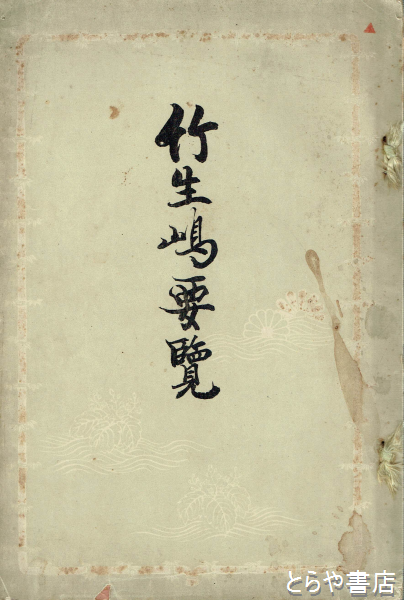 竹生嶋要覧
とらや書店